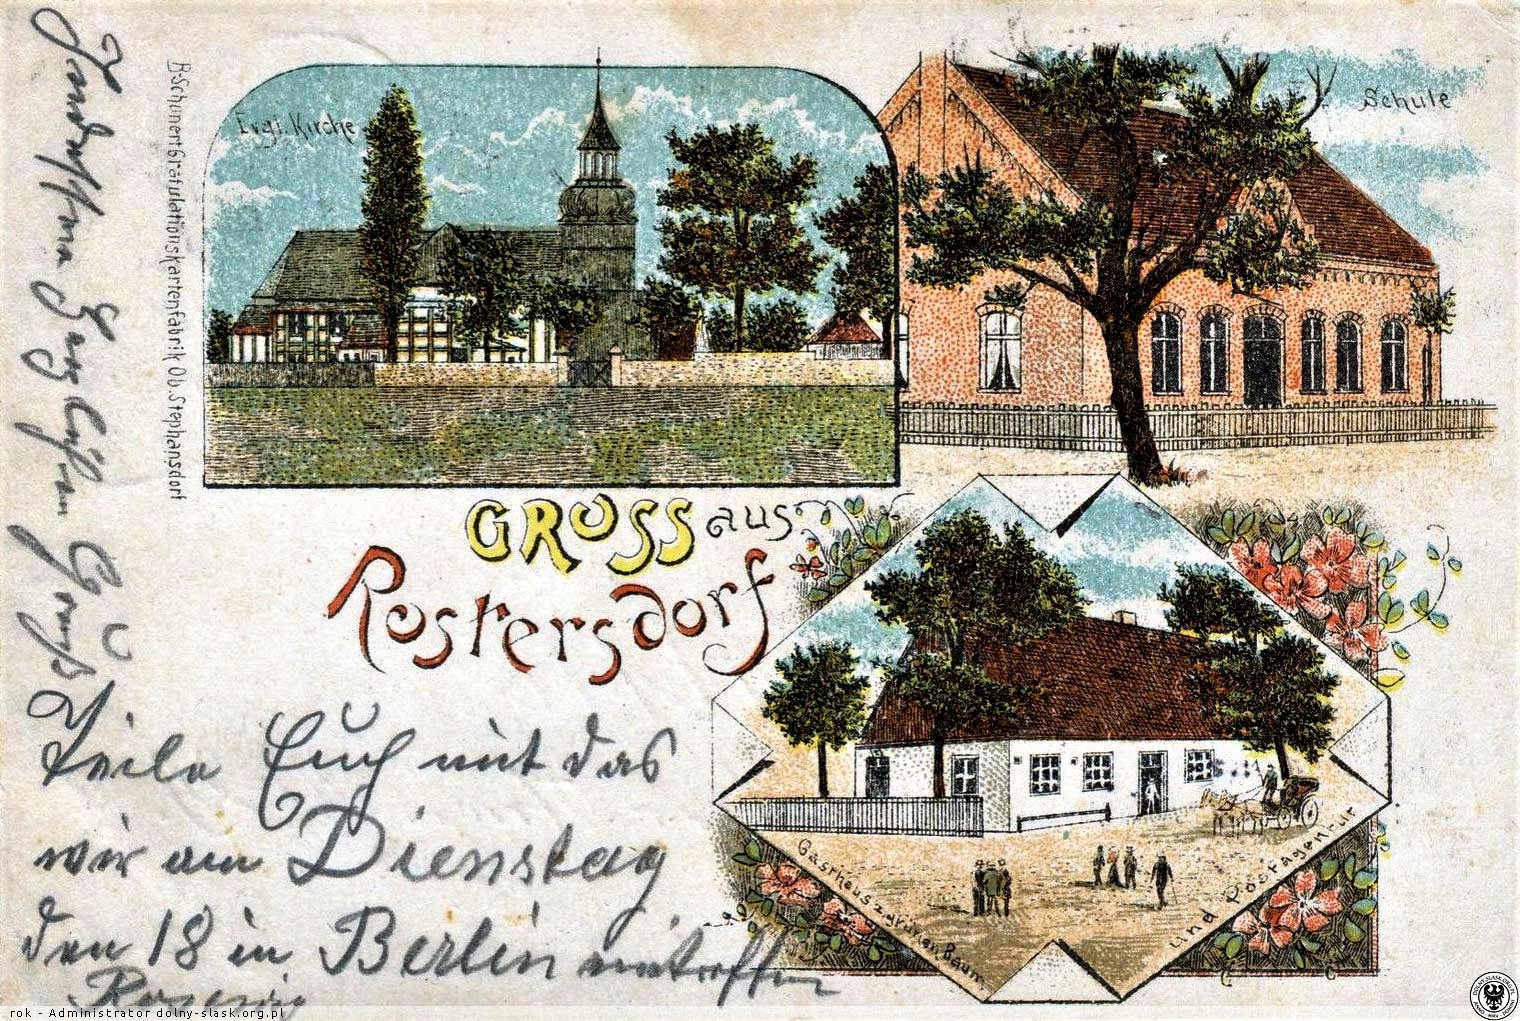 Evgl. Kirche
Schule
B. Schunert Gratulationskartenfabrik Ob. Stephansdorf
GRUSS aus
Rostersdorf
Gasthaus z. grünen Baum
und Postagentur
Teile Euch mit das
wir am Dienstag
den 18 in Berlin eintreffen
rok - Administrator dolny-slask.org.pl